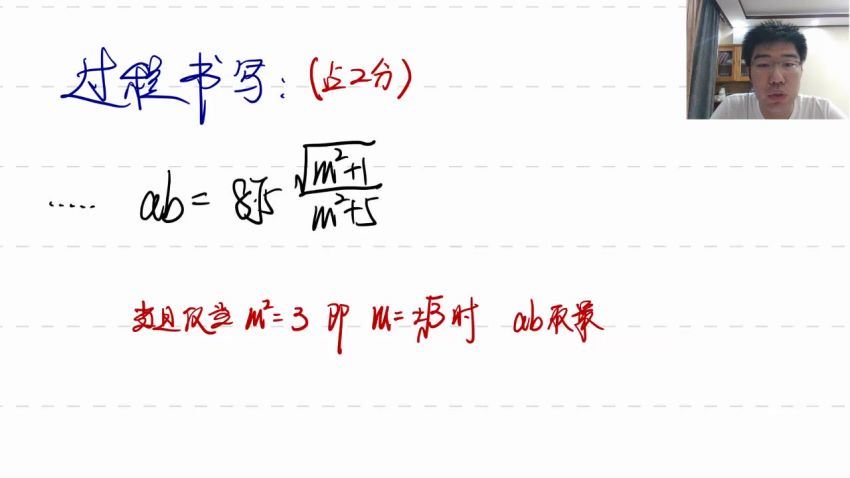 过程书写：(占2分)
..... ab = 8√5 √(m²+1) / (m²+5)
当且仅当 m²=3 即 m=±√3时 ab取最